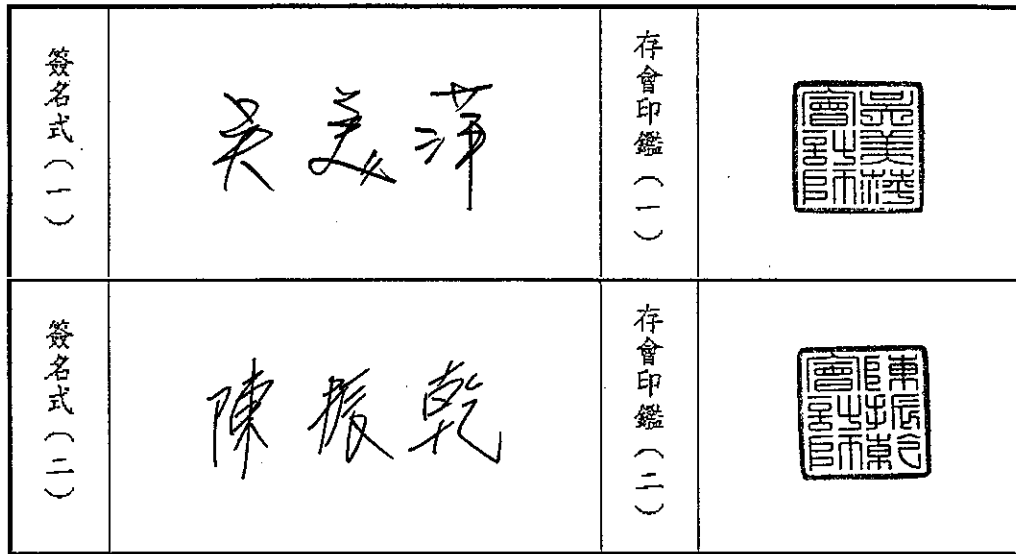 簽名式（一）
吳美萍
存會印鑑（一）
吳美萍會計師
簽名式（二）
陳振乾
存會印鑑（二）
陳振乾會計師